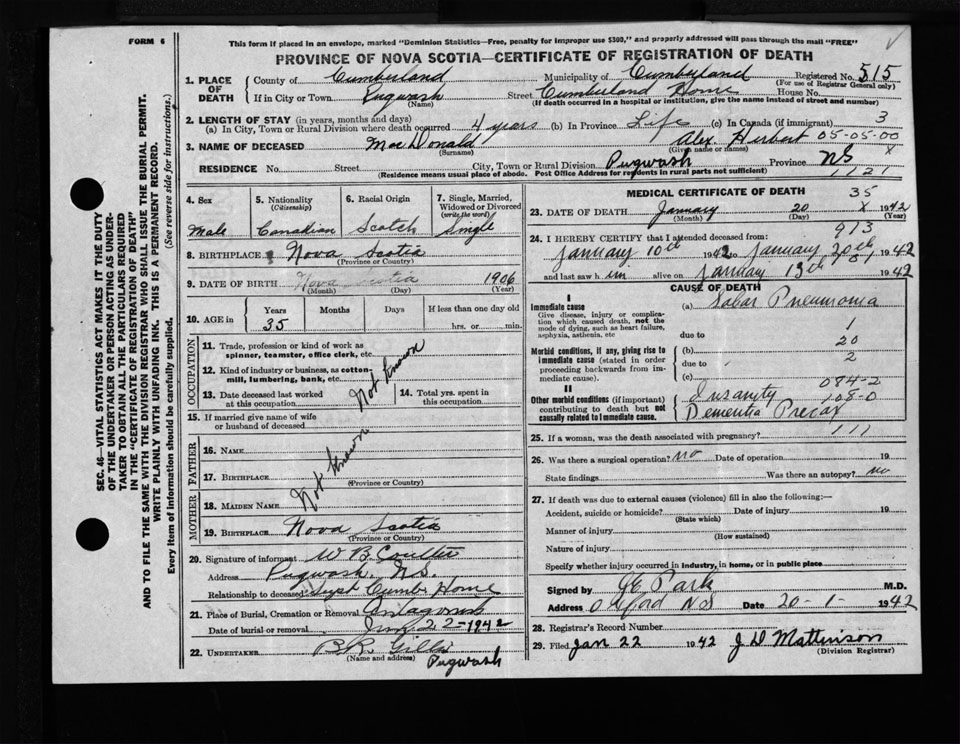 FORM 6
This form if placed in an envelope, marked "Dominion Statistics—Free, penalty for improper use $300," and properly addressed will pass through the mail "FREE"
PROVINCE OF NOVA SCOTIA—CERTIFICATE OF REGISTRATION OF DEATH
SEC. 46—VITAL STATISTICS ACT MAKES IT THE DUTY
OF THE UNDERTAKER OR PERSON ACTING AS UNDER-
TAKER TO OBTAIN ALL THE PARTICULARS REQUIRED
IN THE "CERTIFICATE OF REGISTRATION OF DEATH"
AND TO FILE THE SAME WITH THE DIVISION REGISTRAR WHO SHALL ISSUE THE BURIAL PERMIT.
WRITE PLAINLY WITH UNFADING INK. THIS IS A PERMANENT RECORD.
Every item of Information should be carefully supplied. (See reverse side for instructions.)
1. PLACE OF DEATH
County of Cumberland Municipality of Cumberland Registered No. 515
(For use of Registrar General only)
If in City or Town Pugwash Street Cumberland Home House No.
(Name) (If death occurred in a hospital or institution, give the name instead of street and number)
2. LENGTH OF STAY (in years, months and days) 3
(a) In City, Town or Rural Division where death occurred 4 years (b) In Province Life (c) In Canada (if immigrant)
3. NAME OF DECEASED MacDonald Alex. Herbert 05-05-00
(Surname) (Given name or names) x
RESIDENCE No. Street City, Town or Rural Division Pugwash Province NS
(Residence means usual place of abode. Post Office Address for residents in rural parts not sufficient) 1121
4. Sex
Male
5. Nationality
(Citizenship)
Canadian
6. Racial Origin
Scotch
7. Single, Married,
Widowed or Divorced
(write the word)
Single
8. BIRTHPLACE Nova Scotia
(Province or Country)
9. DATE OF BIRTH Nova Scotia 1906
(Month) (Day) (Year)
10. AGE in
Years Months Days If less than one day old
35 hrs. or min.
OCCUPATION
11. Trade, profession or kind of work as
spinner, teamster, office clerk, etc.
12. Kind of industry or business, as cotton
mill, lumbering, bank, etc.
Not Known
13. Date deceased last worked
at this occupation
14. Total yrs. spent in
this occupation
15. If married give name of wife
or husband of deceased
FATHER
16. NAME
Not Known
17. BIRTHPLACE
(Province or Country)
MOTHER
18. MAIDEN NAME
19. BIRTHPLACE Nova Scotia
(Province or Country)
20. Signature of informant W B Coulter
Address Pugwash, N.S.
Relationship to deceased Supt Cumb Home
21. Place of Burial, Cremation or Removal Antagonish
Date of burial or removal Jan 22-1942
22. UNDERTAKER
(Name and address) Pugwash
MEDICAL CERTIFICATE OF DEATH 35
23. DATE OF DEATH January 20 x 1942
(Month) (Day) (Year)
913
24. I HEREBY CERTIFY that I attended deceased from:
January 10th 1942 to January 20th 1942
and last saw him alive on January 13th 1942
CAUSE OF DEATH
I
Immediate cause
Give disease, injury or complica-
tion which caused death, not the
mode of dying, such as heart failure,
asphyxia, asthenia, etc
(a) Lobar Pneumonia
due to 1
20
Morbid conditions, if any, giving rise to
immediate cause (stated in order
proceeding backwards from im-
mediate cause).
(b)
due to 2
(c)
084-2
II
Other morbid conditions (if important)
contributing to death but not
causally related to immediate cause.
Insanity 108-0
Dementia Precox
111
25. If a woman, was the death associated with pregnancy?
26. Was there a surgical operation? no Date of operation 19
State findings Was there an autopsy? no
27. If death was due to external causes (violence) fill in also the following:—
Accident, suicide or homicide? Date of injury 19
(State which)
Manner of injury
(How sustained)
Nature of injury
Specify whether injury occurred in industry, in home, or in public place
Signed by Park M.D.
Address Oxford NS Date 20-1- 1942
28. Registrar's Record Number
29. Filed Jan 22 1942 J D Mattinson
(Division Registrar)